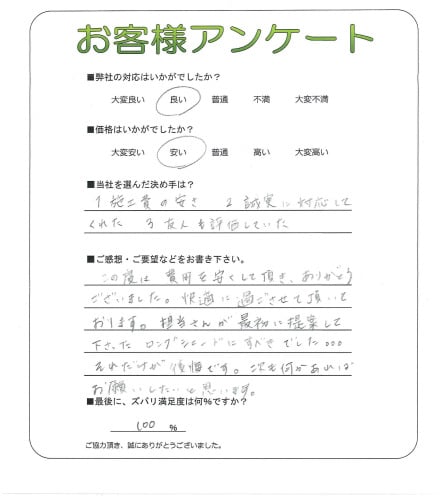 お客様アンケート
■弊社の対応はいかがでしたか?
大変良い 良い 普通 不満 大変不満
■価格はいかがでしたか?
大変安い 安い 普通 高い 大変高い
■当社を選んだ決め手は?
1 施工費の安さ 2 誠実に対応して
くれた 3 友人も評価していた
■ご感想・ご要望などをお書き下さい。
この度は 費用を安くして頂き、ありがとう
ございました。快適に過ごさせて頂いて
おります。担当さんが最初に提案して
下さった ロングシェードにすべきでした。。。
それだけが後悔です。次も何かあれば
お願いしたいと思います。
■最後に、ズバリ満足度は何%ですか?
100 %
ご協力頂き、誠にありがとうございました。